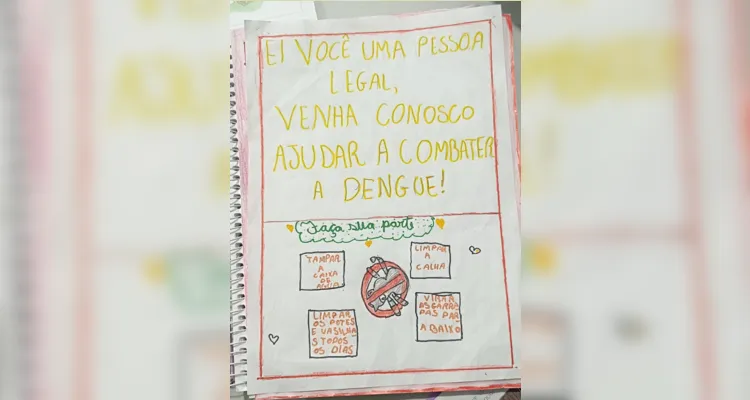 EI VOCÊ UMA PESSOA
LEGAL,
VENHA CONOSCO
AJUDAR A COMBATER
A DENGUE!
Faça sua parte
TAMPAR
A
CAIXA
DE
AGUA
LIMPAR
A
CALHA
LIMPAR
OS POTES
E VASILHA
S TODOS
OS DIAS
VIRAR
AS GARRA
PAS PAR
A BAIXO